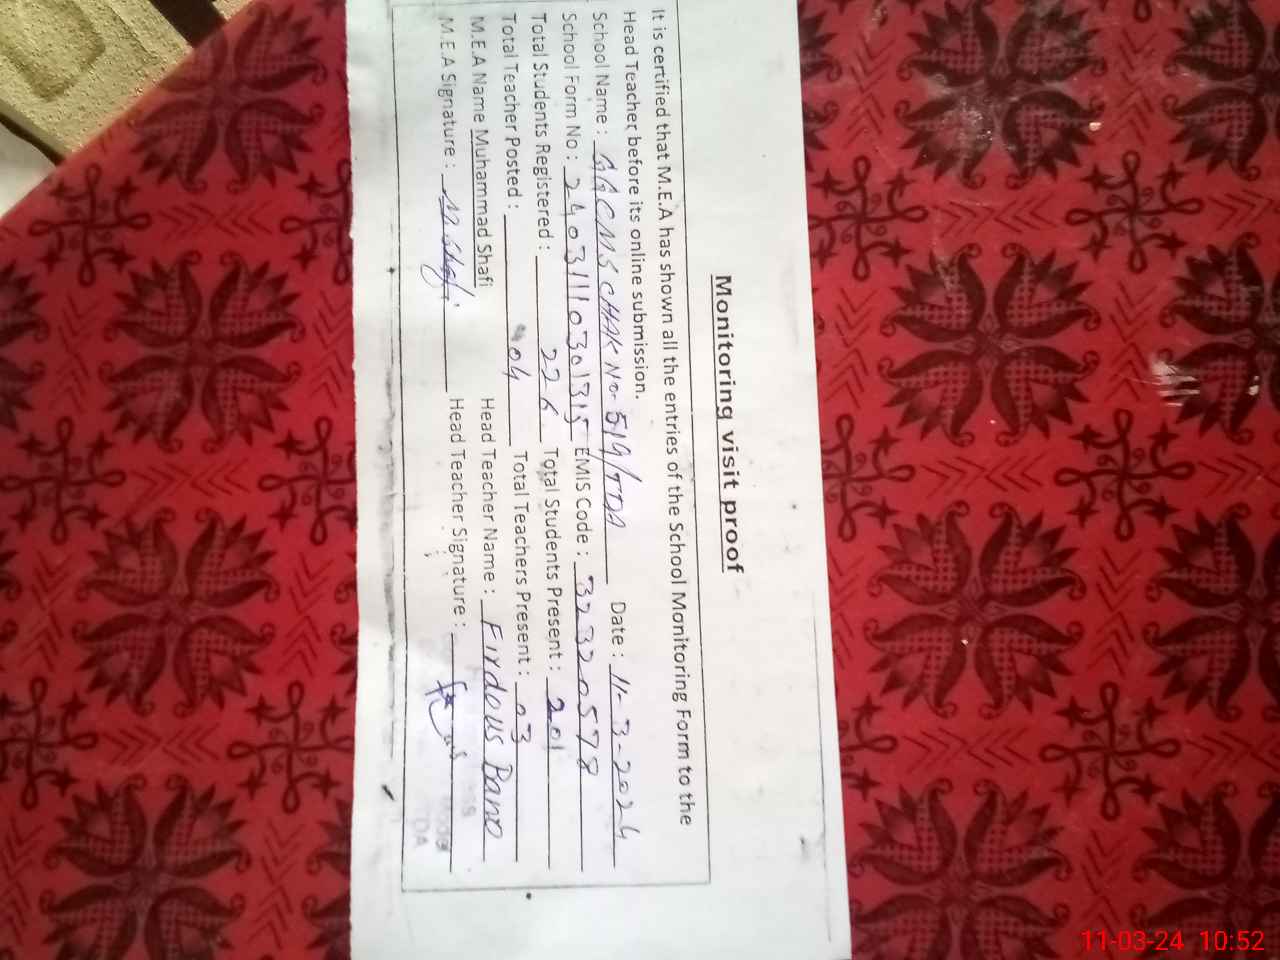 Monitoring visit proof
It is certified that M.E.A has shown all the entries of the School Monitoring Form to the
Head Teacher before its online submission.
School Name : GGCMS CHAK No 519/TDA Date : 11-3-2024
School Form No : 24031110301315 EMIS Code : 32320578
Total Students Registered : 226 Total Students Present : 201
Total Teacher Posted : 04 Total Teachers Present : 03
M.E.A Name Muhammad Shafi Head Teacher Name : Firdous Bano
M.E.A Signature : M Shafi Head Teacher Signature :
TDA
11-03-24 10:52